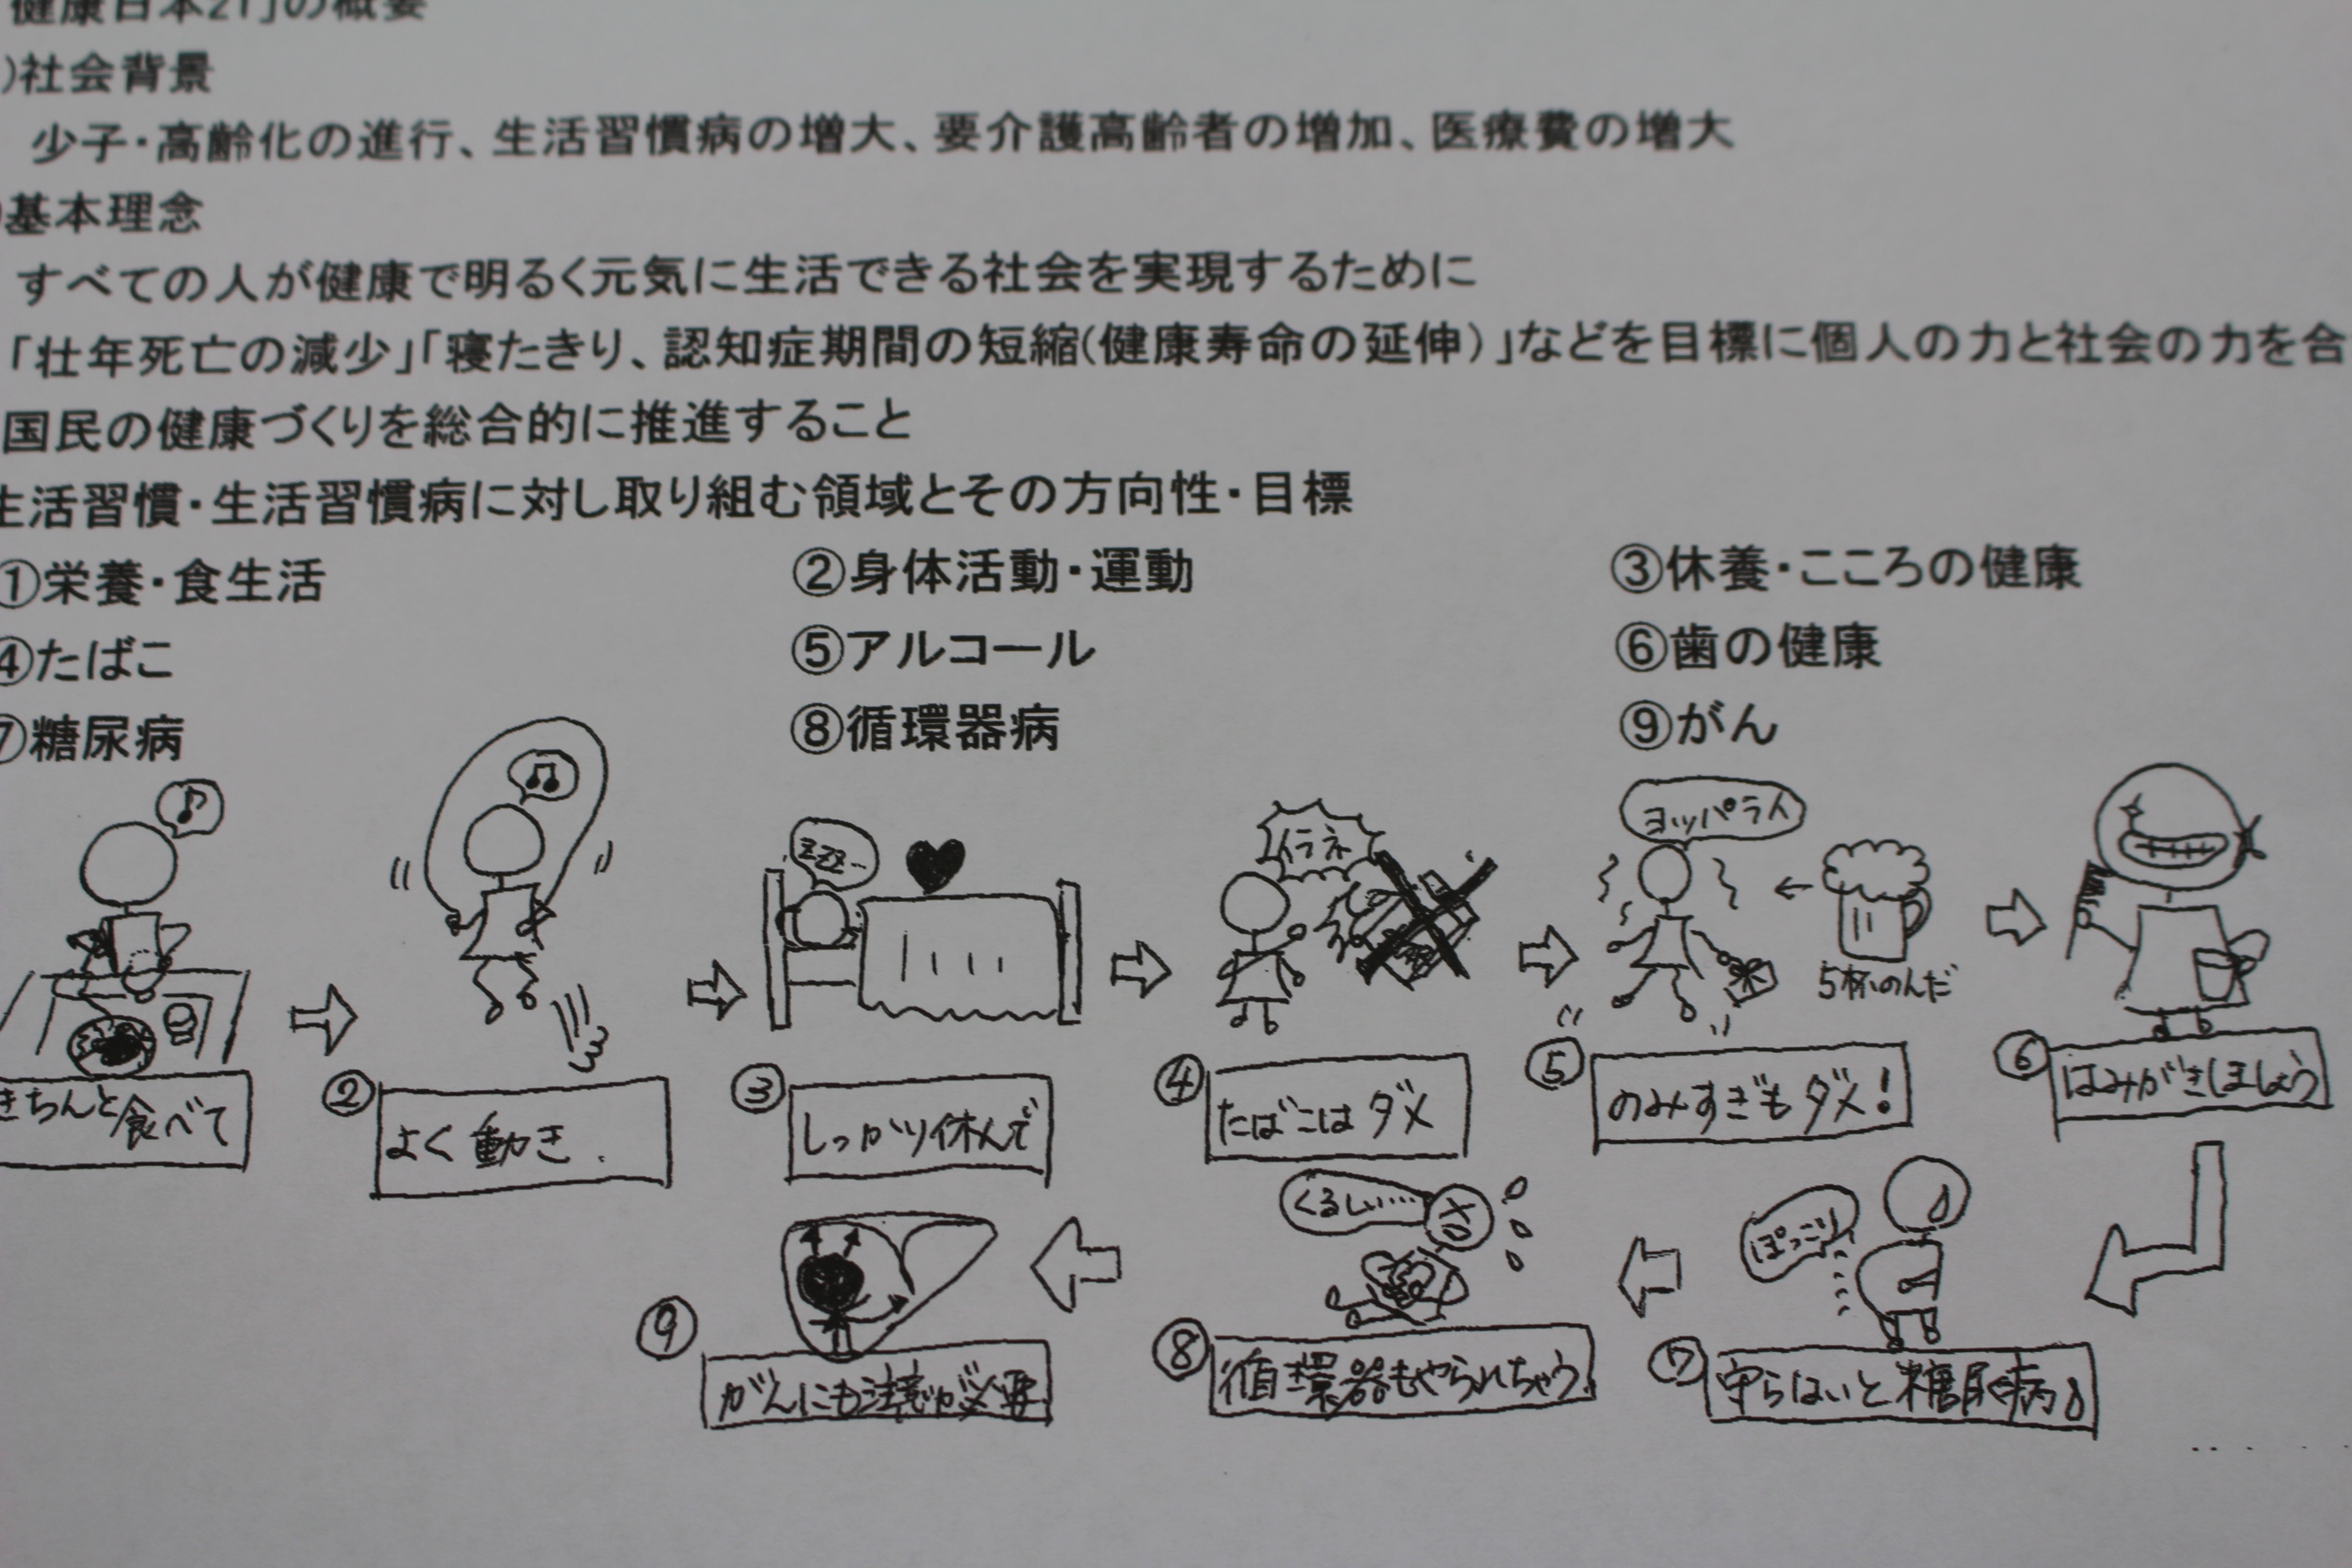 健康日本21」の概要
)社会背景
少子・高齢化の進行、生活習慣病の増大、要介護高齢者の増加、医療費の増大
)基本理念
すべての人が健康で明るく元気に生活できる社会を実現するために
「壮年死亡の減少」「寝たきり、認知症期間の短縮(健康寿命の延伸)」などを目標に個人の力と社会の力を合
国民の健康づくりを総合的に推進すること
生活習慣・生活習慣病に対し取り組む領域とその方向性・目標
①栄養・食生活 ②身体活動・運動 ③休養・こころの健康
④たばこ ⑤アルコール ⑥歯の健康
⑦糖尿病 ⑧循環器病 ⑨がん
ZZZ… イラネ ヨッパライ
5杯のんだ
きちんと食べて ②よく動き. ③しっかり休んで ④たばこはダメ ⑤のみすぎもダメ! ⑥はみがきしましょう
ぽっこり くるしい……
⑦守らないと糖尿病
⑧循環器もやられちゃう
⑨がんにも注意が必要